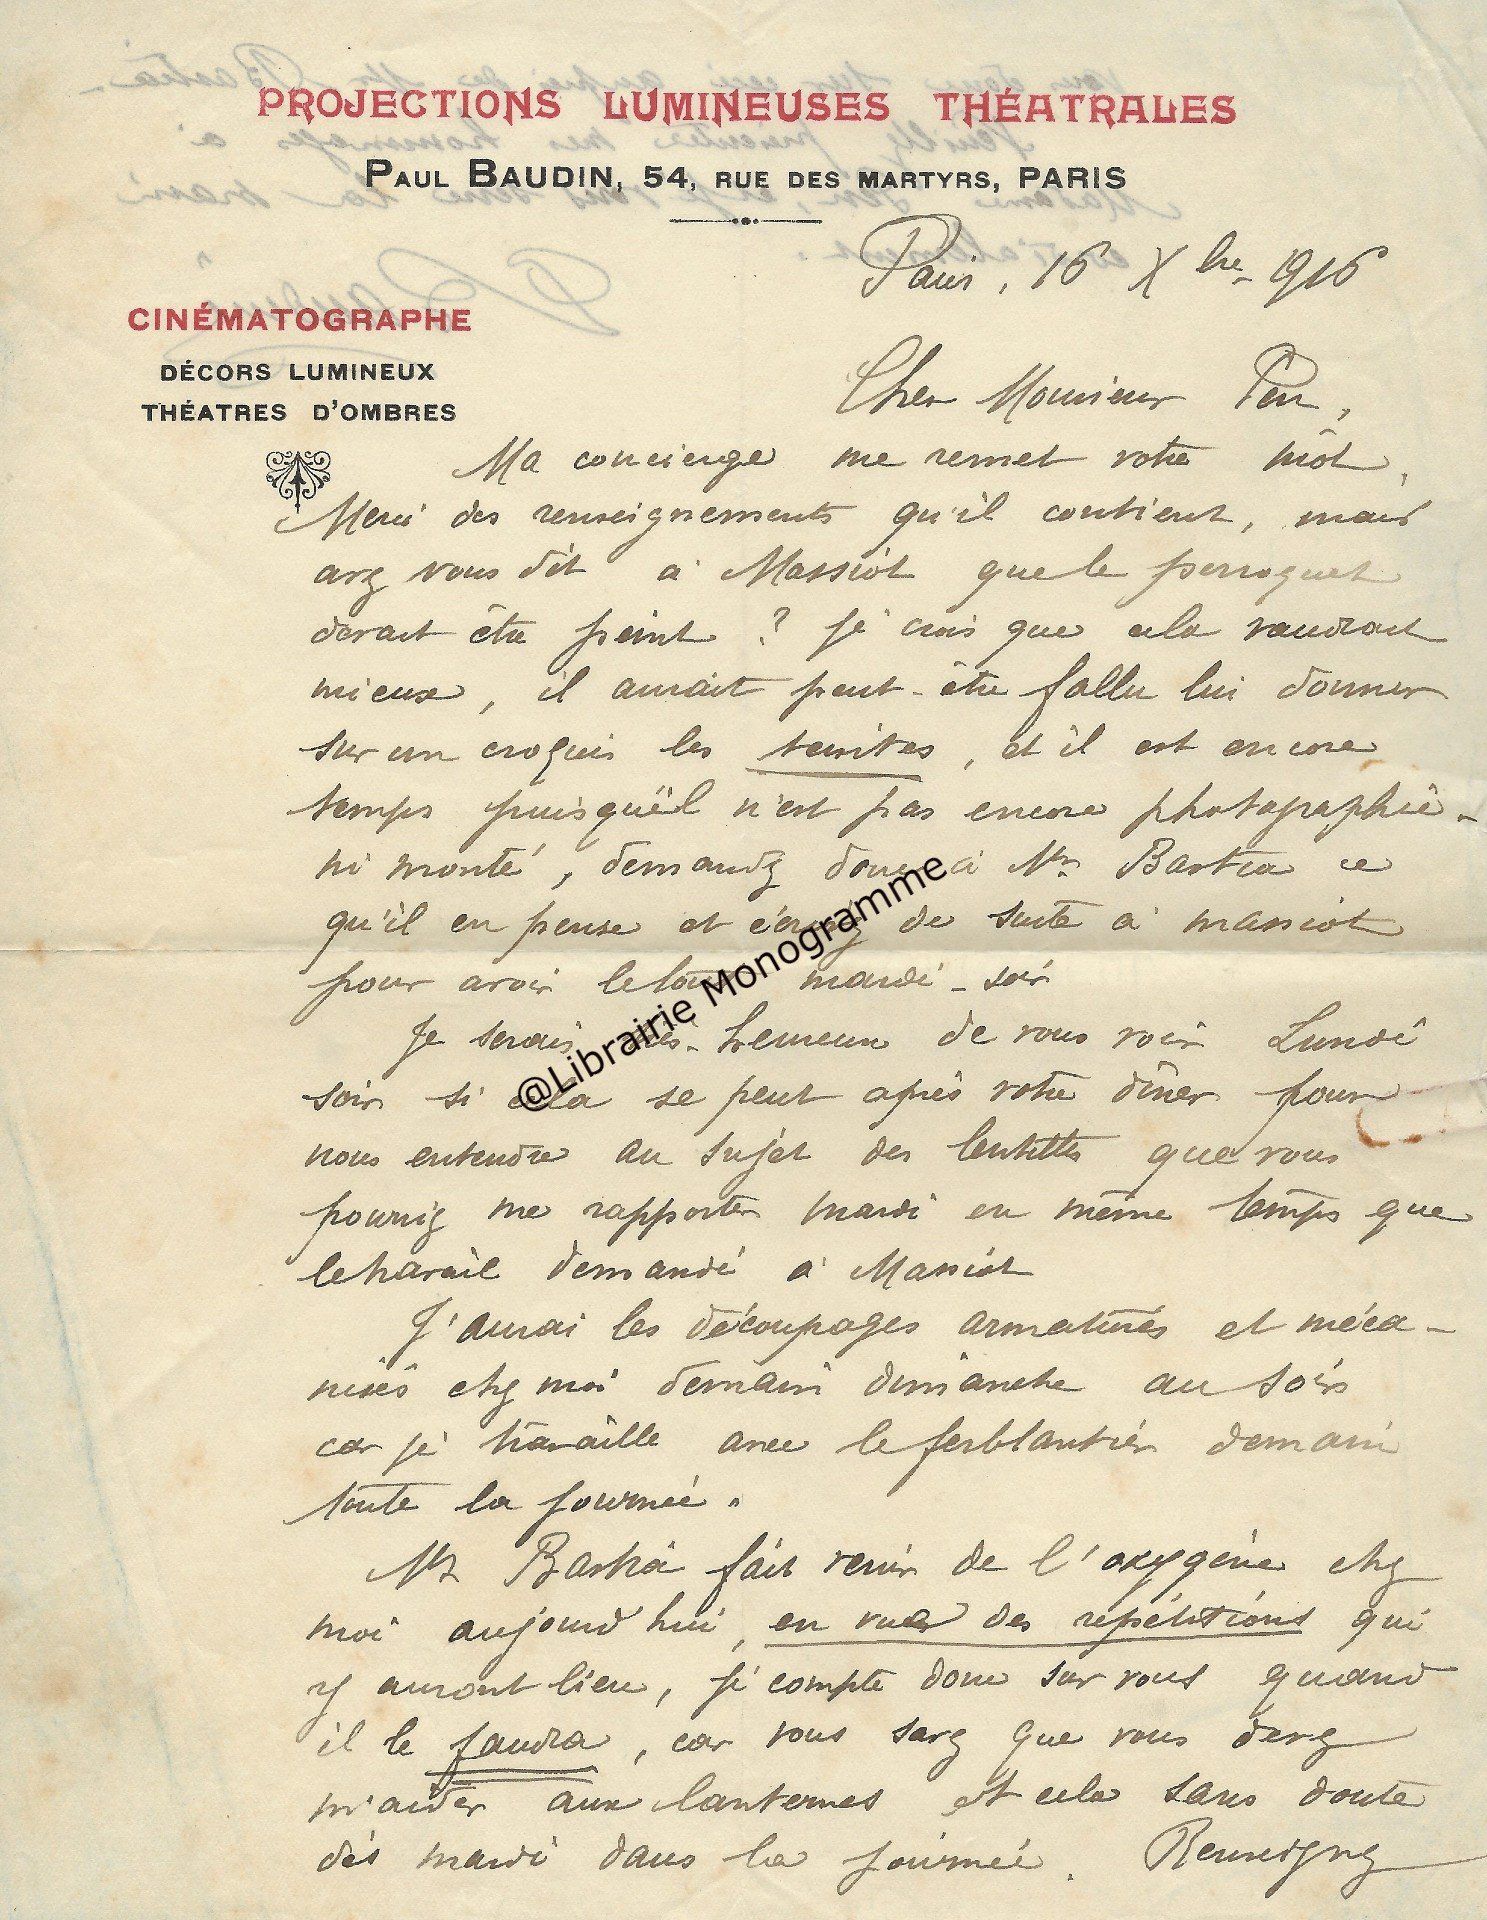 PROJECTIONS LUMINEUSES THÉATRALES
PAUL BAUDIN, 54, RUE DES MARTYRS, PARIS
Paris, 16 Xbre 1916
CINÉMATOGRAPHE
DÉCORS LUMINEUX
THÉATRES D'OMBRES
Cher Monsieur
Ma concierge me remet votre mot,
Merci des renseignements qu'il contient, mais
avez vous dit à Massiot que le perroquet
devait être peint ? je crois que cela vaudrait
mieux, il aurait peut-être fallu lui donner
sur un croquis les teintes, et il est encore
temps puisqu'il n'est pas encore photographié
ni monté, demandez donc à Mr Bastia ce
qu'il en pense et écrivez de suite à Massiot
pour avoir le tout mardi-soir
Je serais très-heureux de vous voir Lundi
soir si cela se peut après votre dîner pour
nous entendre au sujet des lentilles que vous
pourriez me rapporter mardi en même temps que
le travail demandé à Massiot
J'aurai les découpages armaturés et méca-
nisés chez moi demain dimanche au soir
car je travaille avec le ferblantier demain
toute la journée.
Mr Bastia fait venir de l'oxygène chez
moi aujourd'hui, en vue des répétitions qui
y auront lieu, je compte donc sur vous quand
il le faudra, car vous savez que vous devez
m'aider aux lanternes et cela sans doute
dès mardi dans la journée.
@Librairie Monogramme